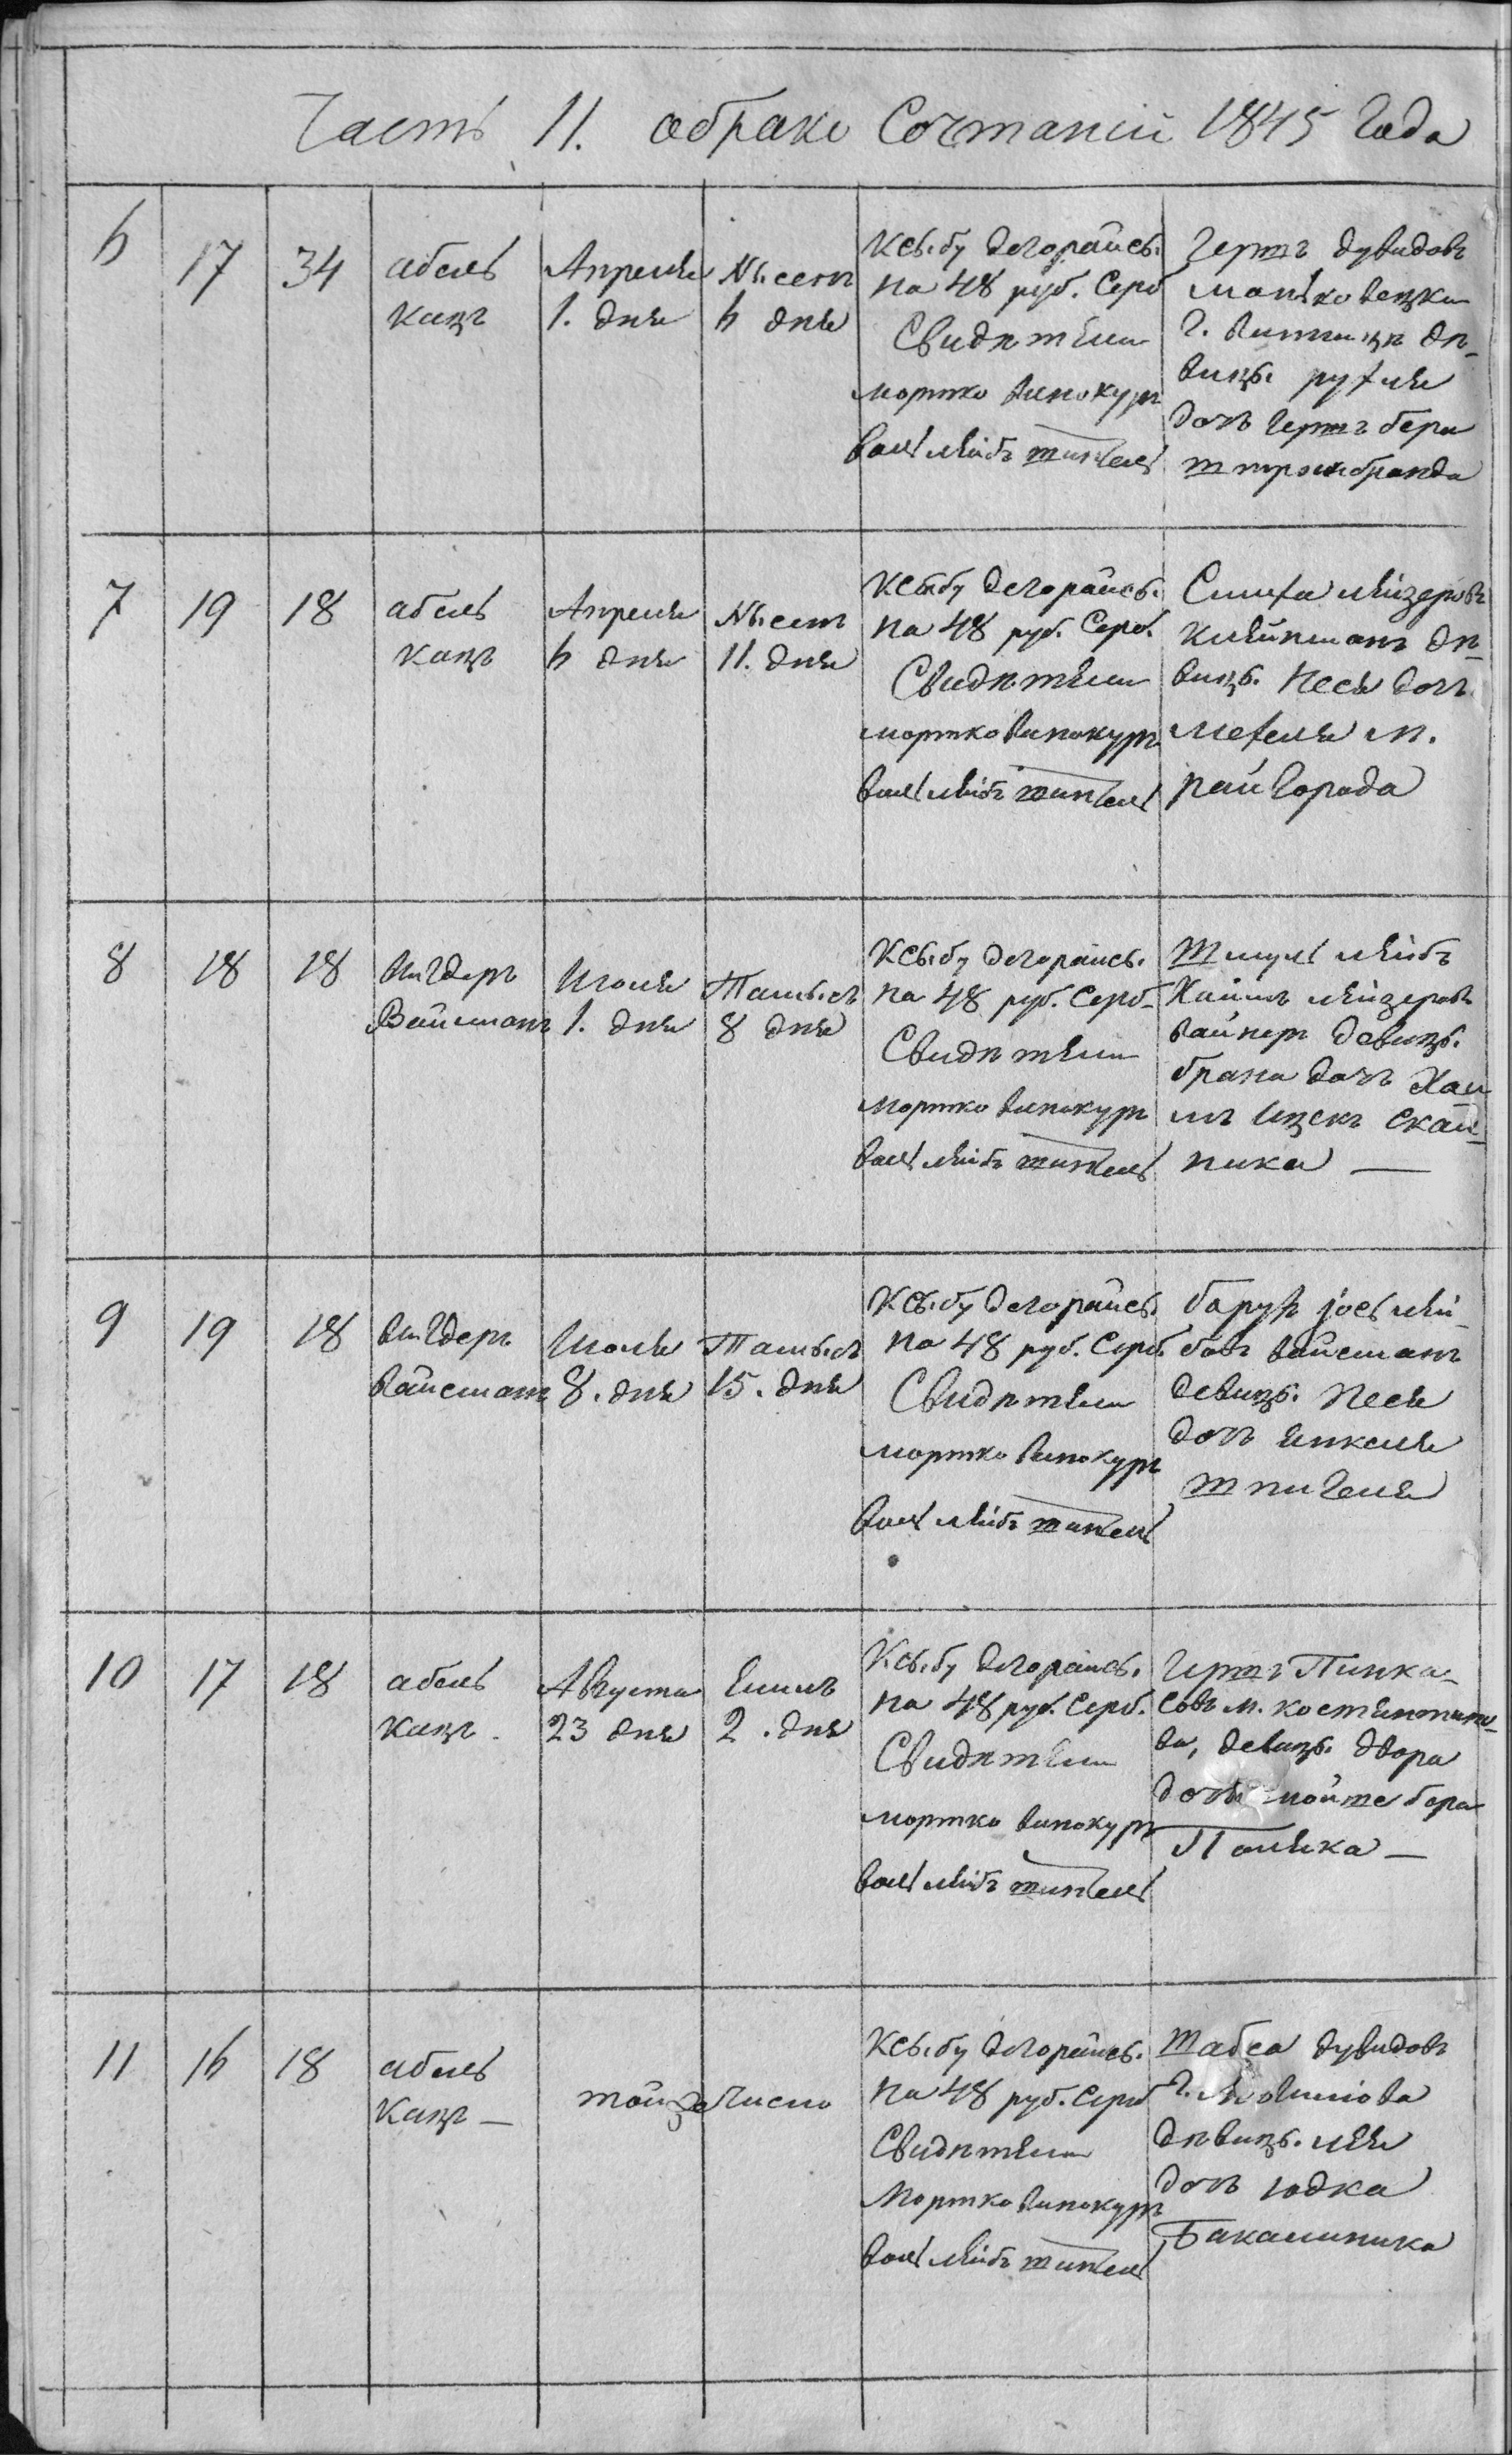 Часть 11. обраке Сочтаніи 1845 Года
6
17
34
абель
кацъ
Апреля
1. дня
Нысенъ
6 дня
Ксыбу деғорайсы.
на 48 руб. Сереб
Свидѣтели
мортко винокуръ
вольлейбъ
Гершъ дувидовъ
маньковецки
г. винницы дѣ-
вицы. рухля
дочъ Гершъ бера
штромбранда
7
19
18
абель
кацъ
Апреля
6 дня
Нысенъ
11. дня
Ксыбу деғорайсы.
на 48 руб. Сереб.
Свидѣтели
мортко винокуръ
вольлейбъ
Симха лейзеровъ
клейнманъ дѣ-
вицы. Песя дочъ
мехеля м.
райгорода
8
18
18
Вигдеръ
Вайсманъ
Июля
1. дня
Тамысъ
8 дня
Ксыбу деғорайсы.
на 48 руб. Сереб.
Свидѣтели
мортко винокуръ
вольлейбъ
Шмуль лейбъ
Хаимъ лейзеровъ
вайнеръ девицы.
брана дочъ Хаи
мъ Ицекъ скай-
ника
9
19
18
вигдеръ
вайсманъ
Июля
8. дня
Тамысъ
15. дня
Ксыбу деғорайсы.
на 48 руб. Сереб.
Свидѣтели
мортко винокуръ
вольлейбъ
барухъ іось лей-
бовъ вайсманъ
девицы. Песя
дочъ янкеля
шпигеля
10
17
18
абель
кацъ.
Августа
23 дня
Елилъ
2. дня
Ксыбу деғорайсы.
на 48 руб. Сереб.
Свидѣтели
мортко винокуръ
вольлейбъ
Гершъ Пинка-
совъ м. костянтино-
ва, девицы. двора
дочъ мойше бера
Поляка —
11
16
18
абель
Кацъ —
тойже Число
Ксыбу деғорайсы.
на 48 руб. Сереб
Свидѣтели
Мортко винокуръ
вольлейбъ
Шабса дувидовъ
г.
дѣвицы. лея
дочъ юдка
Бакалиника